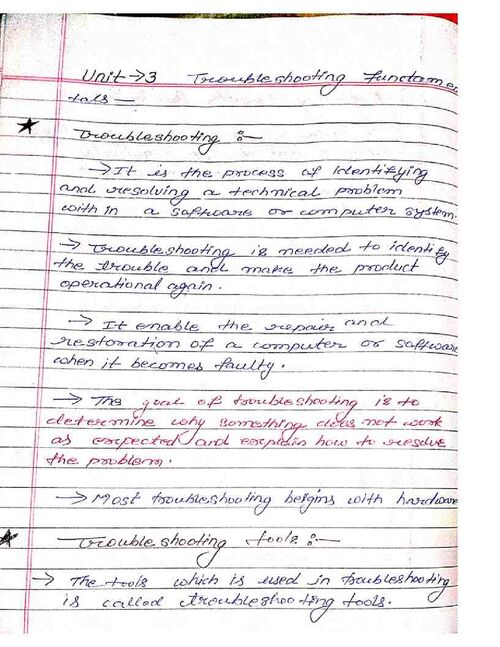 Unit → 3 Troubleshooting Fundamen
tals —
★ Troubleshooting :-
→ It is the process of identifying
and resolving a technical problem
with in a software or computer system.
→ Troubleshooting is needed to identify
the trouble and make the product
operational again.
→ It enable the repair and
restoration of a computer or software
when it becomes faulty.
→ The goal of troubleshooting is to
determine why something does not work
as expected and explain how to resolve
the problem.
→ Most troubleshooting beigins with hardware
★ Trouble shooting tools :-
→ The tools which is used in troubleshooting
is called troubleshooting tools.